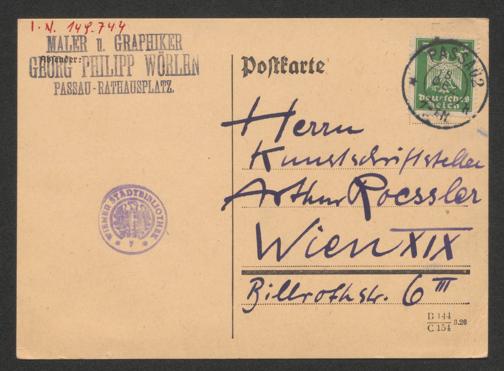 I.N. 149.744
MALER u. GRAPHIKER
Absender:
GEORG PHILIPP WÖRLEN
PASSAU-RATHAUSPLATZ.
Postkarte
PASSAU 2
Deutsches
Reich
Herrn
Kunstschriftsteller
Arthur Roessler
Wien XIX
Billrothstr. 6 III
WIENER STADTBIBLIOTHEK
B 144
C 154
3.26